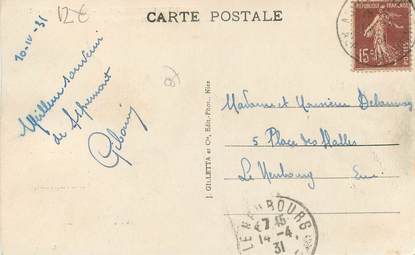 12€
CARTE POSTALE
10-IV-31
Meilleur souvenir
de Aspremont
8)
J. GILLETTA et Cie, Edit.-Phot., Nice
REPUBLIQUE FRANÇAISE
15c
POSTES
Madame et Monsieur Delaunay
5 Place des Halles
Le Neubourg Eure
LE NEUBOURG
17 15
14-4
31